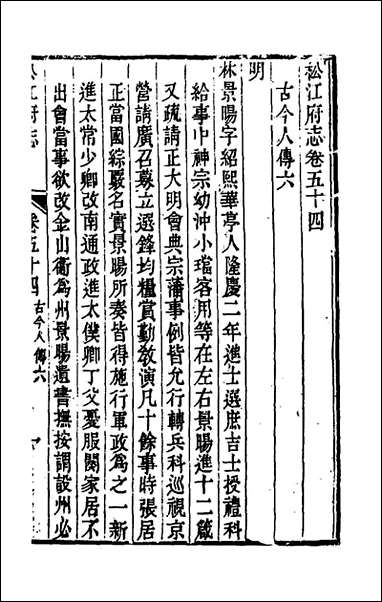 松江府志卷五十四
古今人傳六
明
林景暘字紹熙華亭人隆慶二年進士選庶吉士授禮科
給事中神宗幼沖小璫客用等在左右景暘進十二箴
又疏請正大明會典宗藩事例皆允行轉兵科巡視京
營請廣召募立選鋒均糧賞勤敎演凡十餘事時張居
正當國綜覈名實景暘所奏皆得施行軍政爲之一新
進太常少卿改南通政進太僕卿丁父憂服闋家居不
出會當事欲改金山衞爲州景暘遺書撫按謂設州必
松江府志
卷五十四 古今人傳六